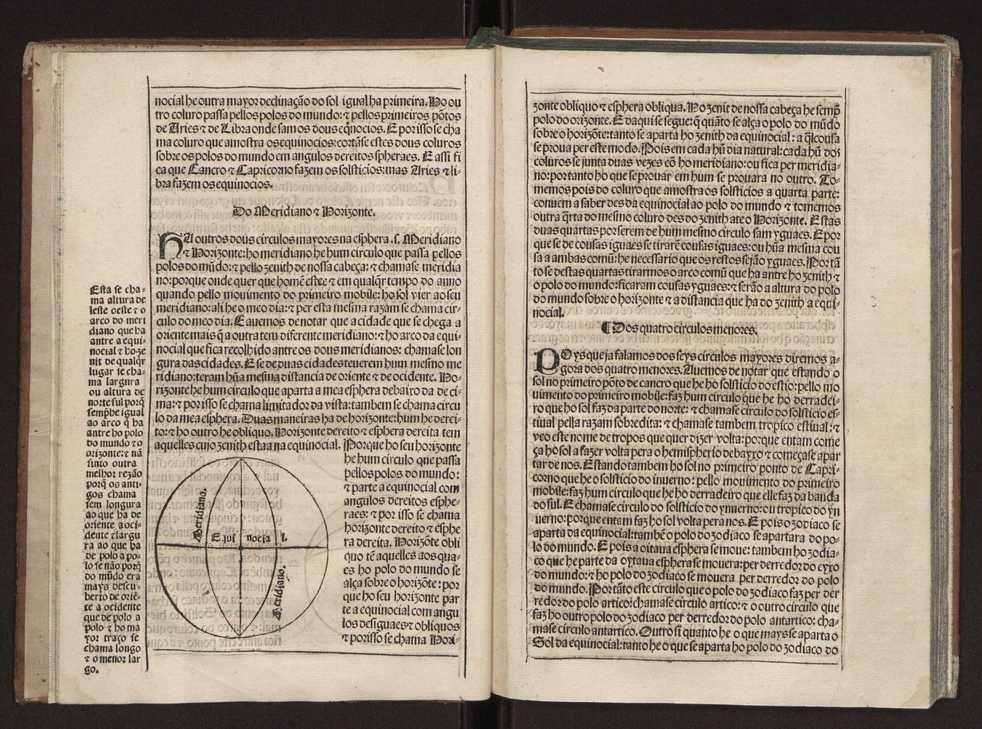 nocial he outra mayor declinação do sol igual ha primeira. Ho ou
tro coluro passa pellos polos do mundo: ⁊ pellos primeiros põtos
de Aries ⁊ de Libra onde sam os dous eq̃nocios. E por isso se cha
ma coluro que amostra os equinocios: cortãse estes dous coluros
sobre os polos do mundo em angulos dereitos spheraes. E assi fi
ca que Cancro ⁊ Capricorno fazem os solsticios: mas Aries ⁊ li-
bra fazem os equinocios.
Do Meridiano ⁊ Horizonte.
HA outros dous circulos mayores na esphera .s. Meridiano
⁊ Horizonte: ho meridiano he hum circulo que passa pellos
polos do mũdo: ⁊ pello zenith de nossa cabeça: ⁊ chamase meridia
no: porque onde quer que homẽ estee: ⁊ em qualq̃r tempo do anno
quando pello mouimento do primeiro mobile: ho sol vier ao seu
meridiano: ali he o meo dia: ⁊ per esta mesma razam se chama cir-
culo do meo dia. E auemos de notar que a cidade que se chega a
oriente mais q̃ a outra tem diferente meridiano: ⁊ ho arco da equi-
nocial que fica recolhido antre os dous meridianos: chamase lon
gura das cidades. E se de duas cidades teuerem hum mesmo me
ridiano: teram hũa mesma distancia de oriente ⁊ de ocidente. Ho-
rizonte he hum circulo que aparta a mea esphera debaixo da de ci-
ma: ⁊ por isso se chama limitador da vista: tambem se chama circu
lo da mea esphera. Duas maneiras ha de horizonte: hum he derei-
to: ⁊ ho outro he obliquo. Horizonte dereito ⁊ esphera dereita tem
aquelles cujo zenith estaa na equinocial. Porque ho seu horizonte
he hum circulo que passa
pellos polos do mundo:
⁊ parte a equinocial com
angulos dereitos esphe-
raes: ⁊ por isso se chama
horizonte dereito ⁊ esphe
ra dereita. Horizõte obli
quo tẽ aquelles aos qua-
es ho polo do mundo se
alça sobre o horizõte: por
que ho seu horizonte par
te a equinocial com angu
los desiguaes ⁊ obliquos
⁊ por isso se chama Hori-
Meridiano.
Equi nocia l.
Meridiano.
Esta se cha-
ma altura de
leste oeste ⁊ o
arco do meri
diano que ha
antre a equi-
nocial ⁊ ho ze
nit de qualq̃r
lugar se cha-
ma largura
ou altura de
norte sul porq̃
sempre he igual
ao arco q̃ ha
antre ho polo
do mundo ⁊ o
orizonte: ⁊ nã
sinto outra
melhor rezão
porq̃ os anti-
gos chama
rem longura
ao que ha de
oriente a oci-
dente ⁊ largu
ra ao que ha
de polo a po-
lo se não porq̃
do mũdo era
mays descu-
berto de oriẽ-
te a ocidente
que de polo a
polo ⁊ ho ma
yor traço se
chama longo
⁊ o menor lar
go.
zonte obliquo ⁊ esphera obliqua. Ho zenit de nossa cabeça he semp̃
polo do orizonte. E daqui se segue: q̃ quãto se alça o polo do mũdo
sobre o horizõte: tanto se aparta ho zenith da equinocial: a q̃l cousa
se proua per este modo. Pois em cada hũ dia natural: cada hũ dos
coluros se junta duas vezes cõ ho meridiano: ou fica per meridia-
no: por tanto ho que se prouar em hum se prouara no outro. To-
memos pois do coluro que amostra os solsticios a quarta parte:
conuem a saber des da equinocial ao polo do mundo ⁊ tomemos
outra q̃rta do mesmo coluro des do zenith ate o Horizonte. Estas
duas quartas por serem de hum mesmo circulo sam yguaes. E por
que se de cousas iguaes se tirarẽ cousas iguaes: ou hũa mesma cou
sa a ambas comũ: he necessario que os restos sejão yguaes. Por tã
to se destas quartas tirarmos o arco comũ que ha antre ho zenith ⁊
o polo do mundo: ficaram cousas yguaes: ⁊ serão a altura do polo
do mundo sobre o horizonte ⁊ a distancia que ha do zenith a equi-
nocial.
¶ Dos quatro circulos menores.
POys que ja falamos dos seys circulos mayores diremos a-
gora dos quatro menores. Auemos de notar que estando o
sol no primeiro põto de cancro que he ho solsticio do estio: pello mo
uimento do primeiro mobile: faz hum circulo que he ho derradei-
ro que ho sol faz da parte do norte: ⁊ chamase circulo do solsticio es-
tiual pella razam sobredita: ⁊ chamase tambem tropico estiual: ⁊
veo este nome de tropos que quer dizer volta: porque entam come
ça ho sol a fazer volta pera o hemispherio debaxo ⁊ começase apar
tar de nos. Estando tambem ho sol no primeiro ponto de Capri-
corno que he o solsticio do inuerno: pello mouimento do primeiro
mobile: faz hum circulo que he ho derradeiro que elle faz da banda
do sul. E chamase circulo do solsticio do ynuerno: ou tropico do yn
uerno: porque entam faz ho sol volta pera nos. E pois o zodiaco se
aparta da equinocial: tambẽ o polo do zodiaco se apartara do po-
lo do mundo. E pois a oitaua esphera se moue: tambem ho zodia-
co que he parte da oytaua esphera se mouera: per derredor do eyxo
do mundo: ⁊ ho polo do zodiaco se mouera per derredor do polo
do mundo. Por tãto este circulo que o polo do zodiaco faz per der
redor do polo artico: chamase circulo artico: ⁊ o outro circulo que
faz ho outro polo do zodiaco per derredor do polo antartico: cha-
mase circulo antartico. Outro si quanto he o que mays se aparta o
Sol da equinocial: tanto he o que se aparta ho polo do zodiaco do